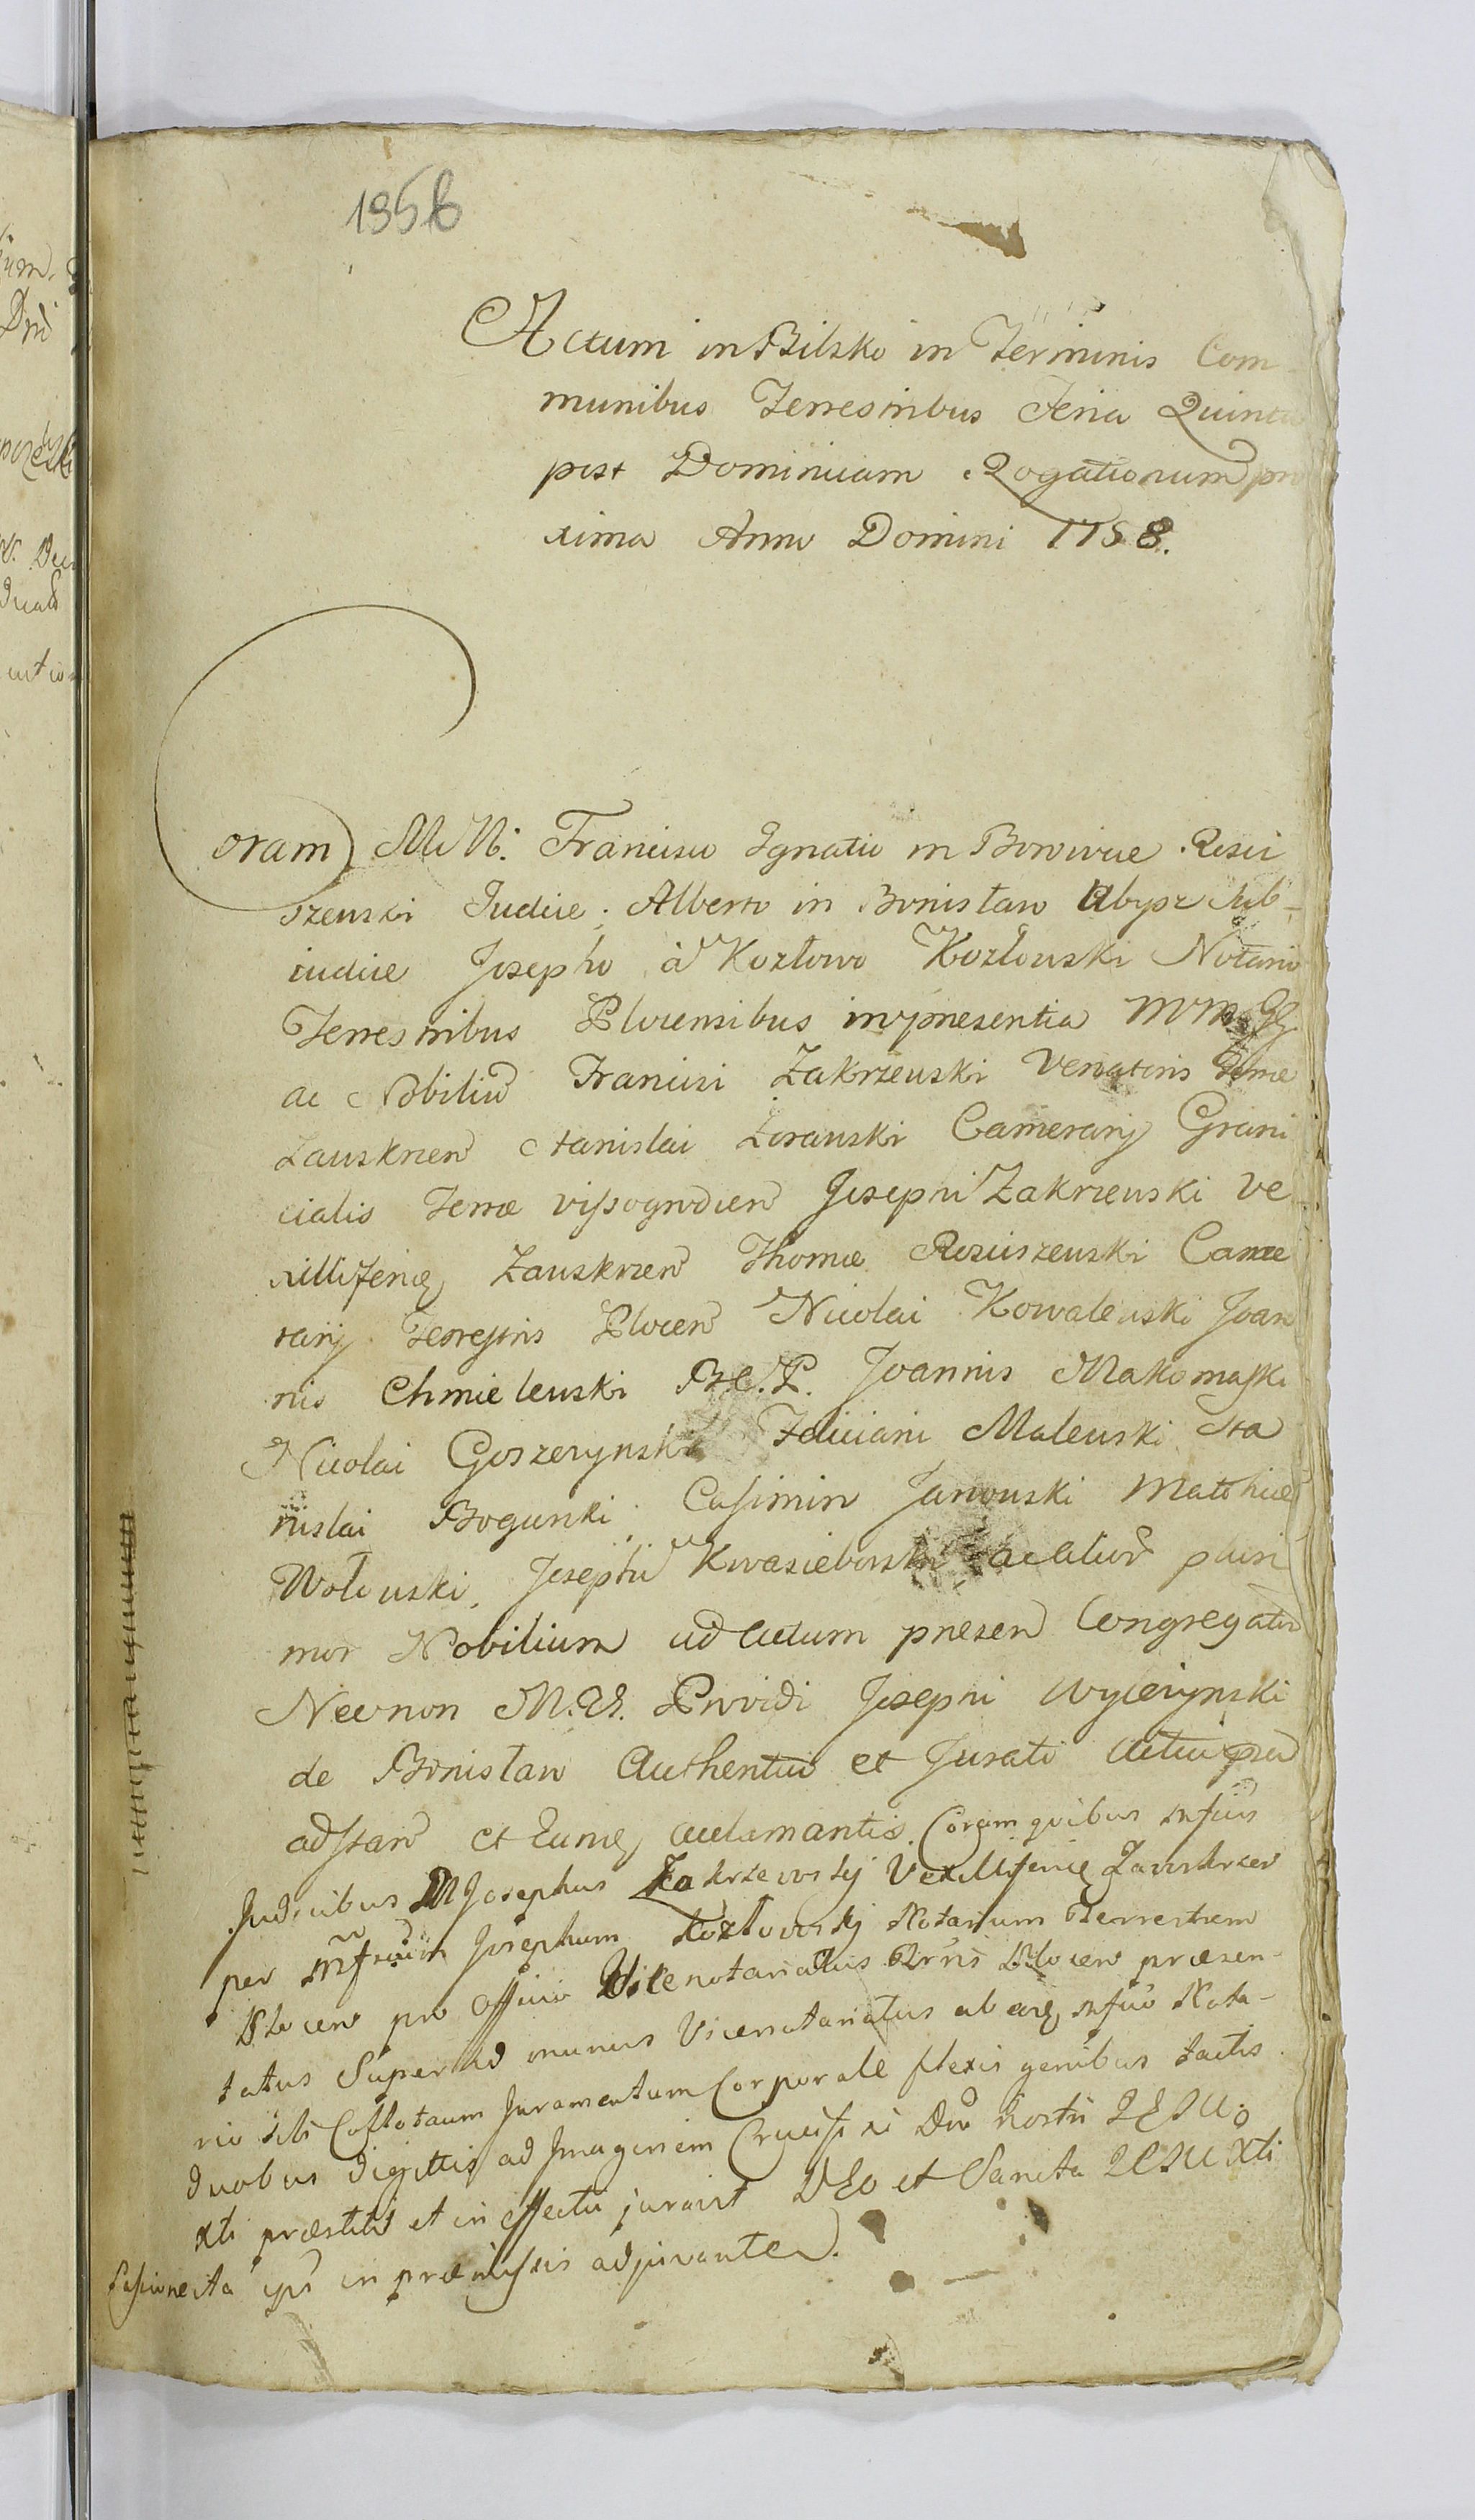 1956
Actum in Bilsko in Terminis Com
munibus Terrestribus Feria Quinta
post Dominicam Rogationum pro
xima Anno Domini 1758.
Coram MM. Francisco Ignatio in Borowice Rosci
szewski Judice. Alberto in Bonislaw Ubysz Sub-
iudice Josepho à Kozłowo Kozłowski Notario
Terrestribus Plocensibus in præsentia MM GG
ac Nobiliũ Francisci Zakrzewski Venatoris Terræ
Zauskrzen Stanislai Zorawski Camerarij Grani
cialis Terræ vissogrodien Josephi Zakrzewski Ve
xilliferiæ Zauskrzen Thomæ Rosciszewski Came
rarij Terrestris Plocen Nicolai Kowalewski Joan
nis Chmielewski B.C.P. Joannis Makomaski
Nicolai Goszczynski Feliciani Malewski Sta
nislai Bogucki Casimiri Janowski Matthiæ
Wołowski, Josephi Kwasieborski ac aliorũ pluri
mor Nobilium ad actum præsen Congregator
Necnon M. G. Providi Josephi Wyczynski
de Bonislaw Authentici et Jurati
adstan et Eumq acclamantis. Coram quibus infris
Judicibus M Josephus Zakrzewskij Vexilliferiæ Zauskrzen
per Mfcum Josephum Kozłowskij Notarium Terrestrem
Plocen pro Officio Vicenotariatus Plocen præsen-
tatus Super ad munus Vicenotariatus ab eoq Notario
rio sibi Collatum Juramentum Corporale flexis genibus tactis
duobus digittis ad Imaginem Crucifixi Dni Nostri JESU
Xti præstitit et in effectu juravit DEo et Sancta JESU Xti
Passione ita ipsi in præmissis adjuvante.